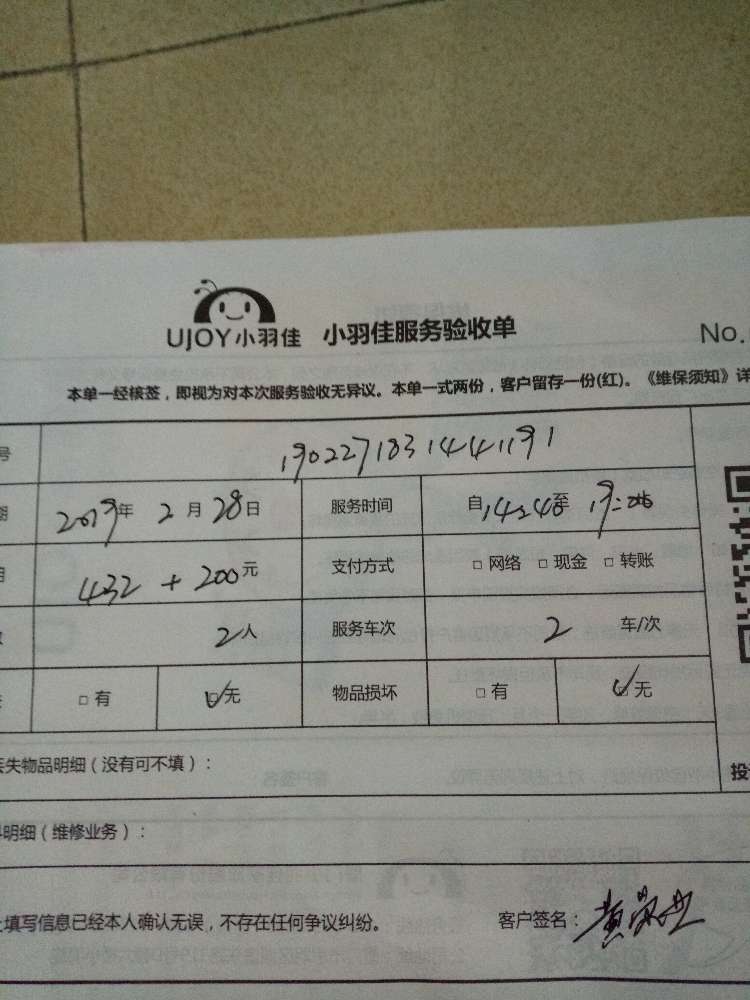 UJOY小羽佳 小羽佳服务验收单
No.
本单一经核签，即视为对本次服务验收无异议。本单一式两份，客户留存一份(红)。《维保须知》详
号 1902271831441191
期 2019年 2月28日 服务时间 自 至
用 432 + 200元 支付方式 □ 网络 □ 现金 □ 转账
数 2人 服务车次 2 车/次
□ 有 □无 物品损坏 □ 有 □无
丢失物品明细（没有可不填）：
投
料明细（维修业务）：
上填写信息已经本人确认无误，不存在任何争议纠纷。 客户签名：